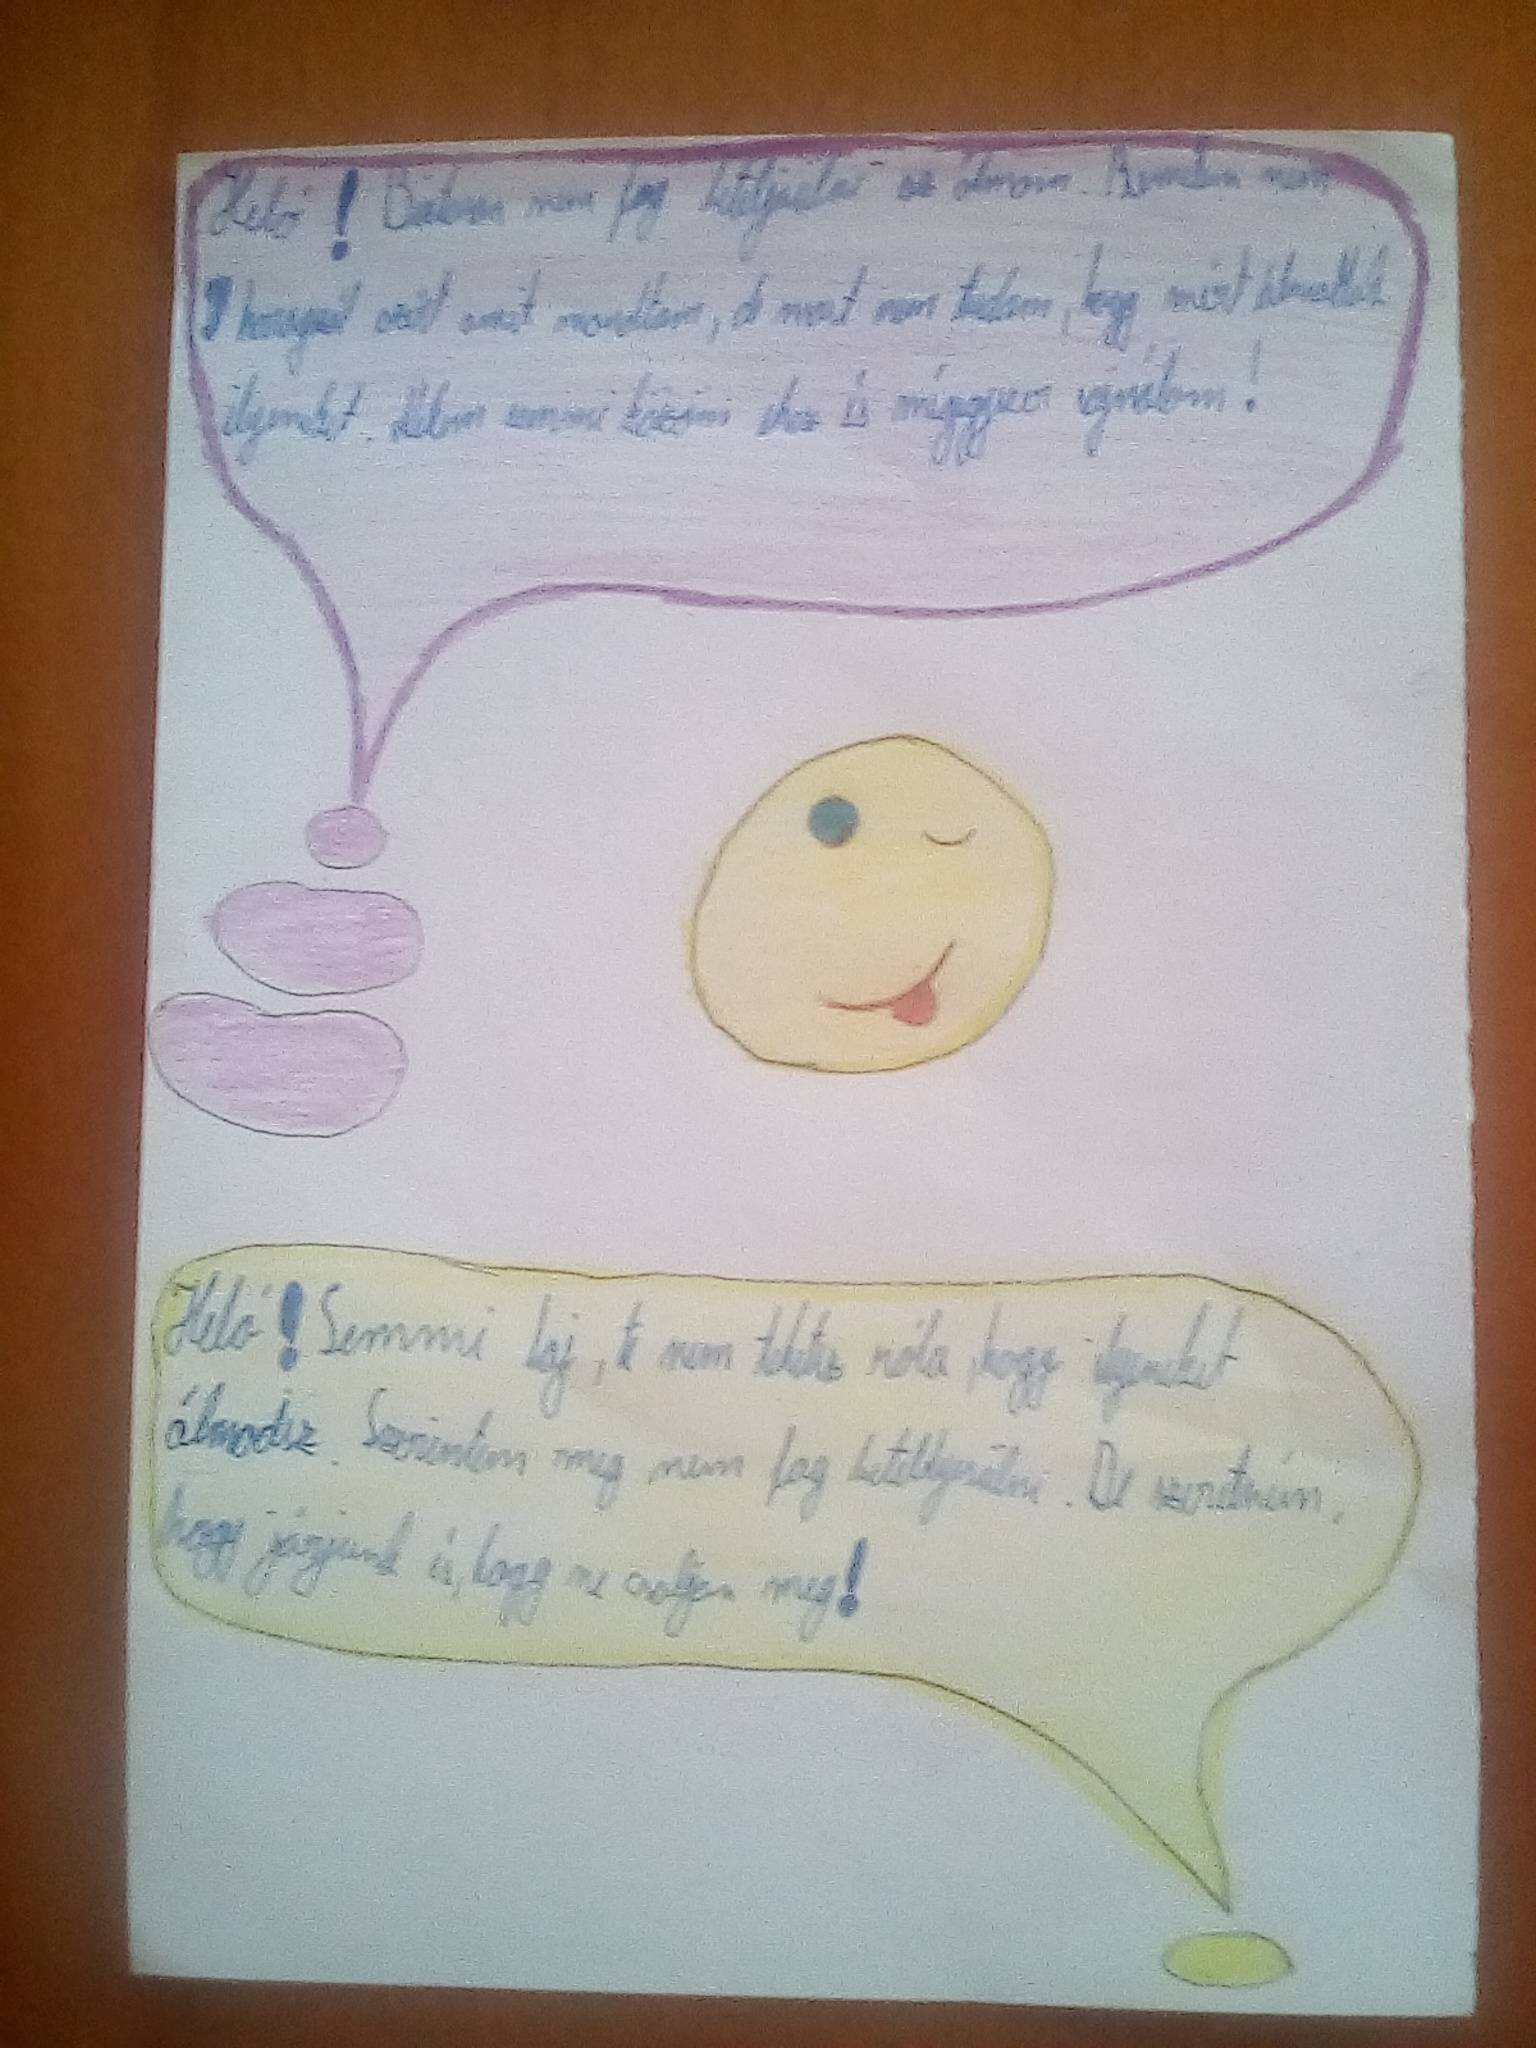 Heló! Biztosan nem fog beteljesülni az álmom. Remélem nem
haragszol azért amit mondtam, de most nem tudom, hogy miért álmodtam
ilyeneket. Nekem semmi közöm ehhez és mégegyszer sajnálom!
Heló! Semmi baj, te nem tehetsz róla, hogy ilyeneket
álmodsz. Szerintem meg nem fog beteljesülni. De szeretném,
hogy járjunk és, hogy ne csaljon meg!